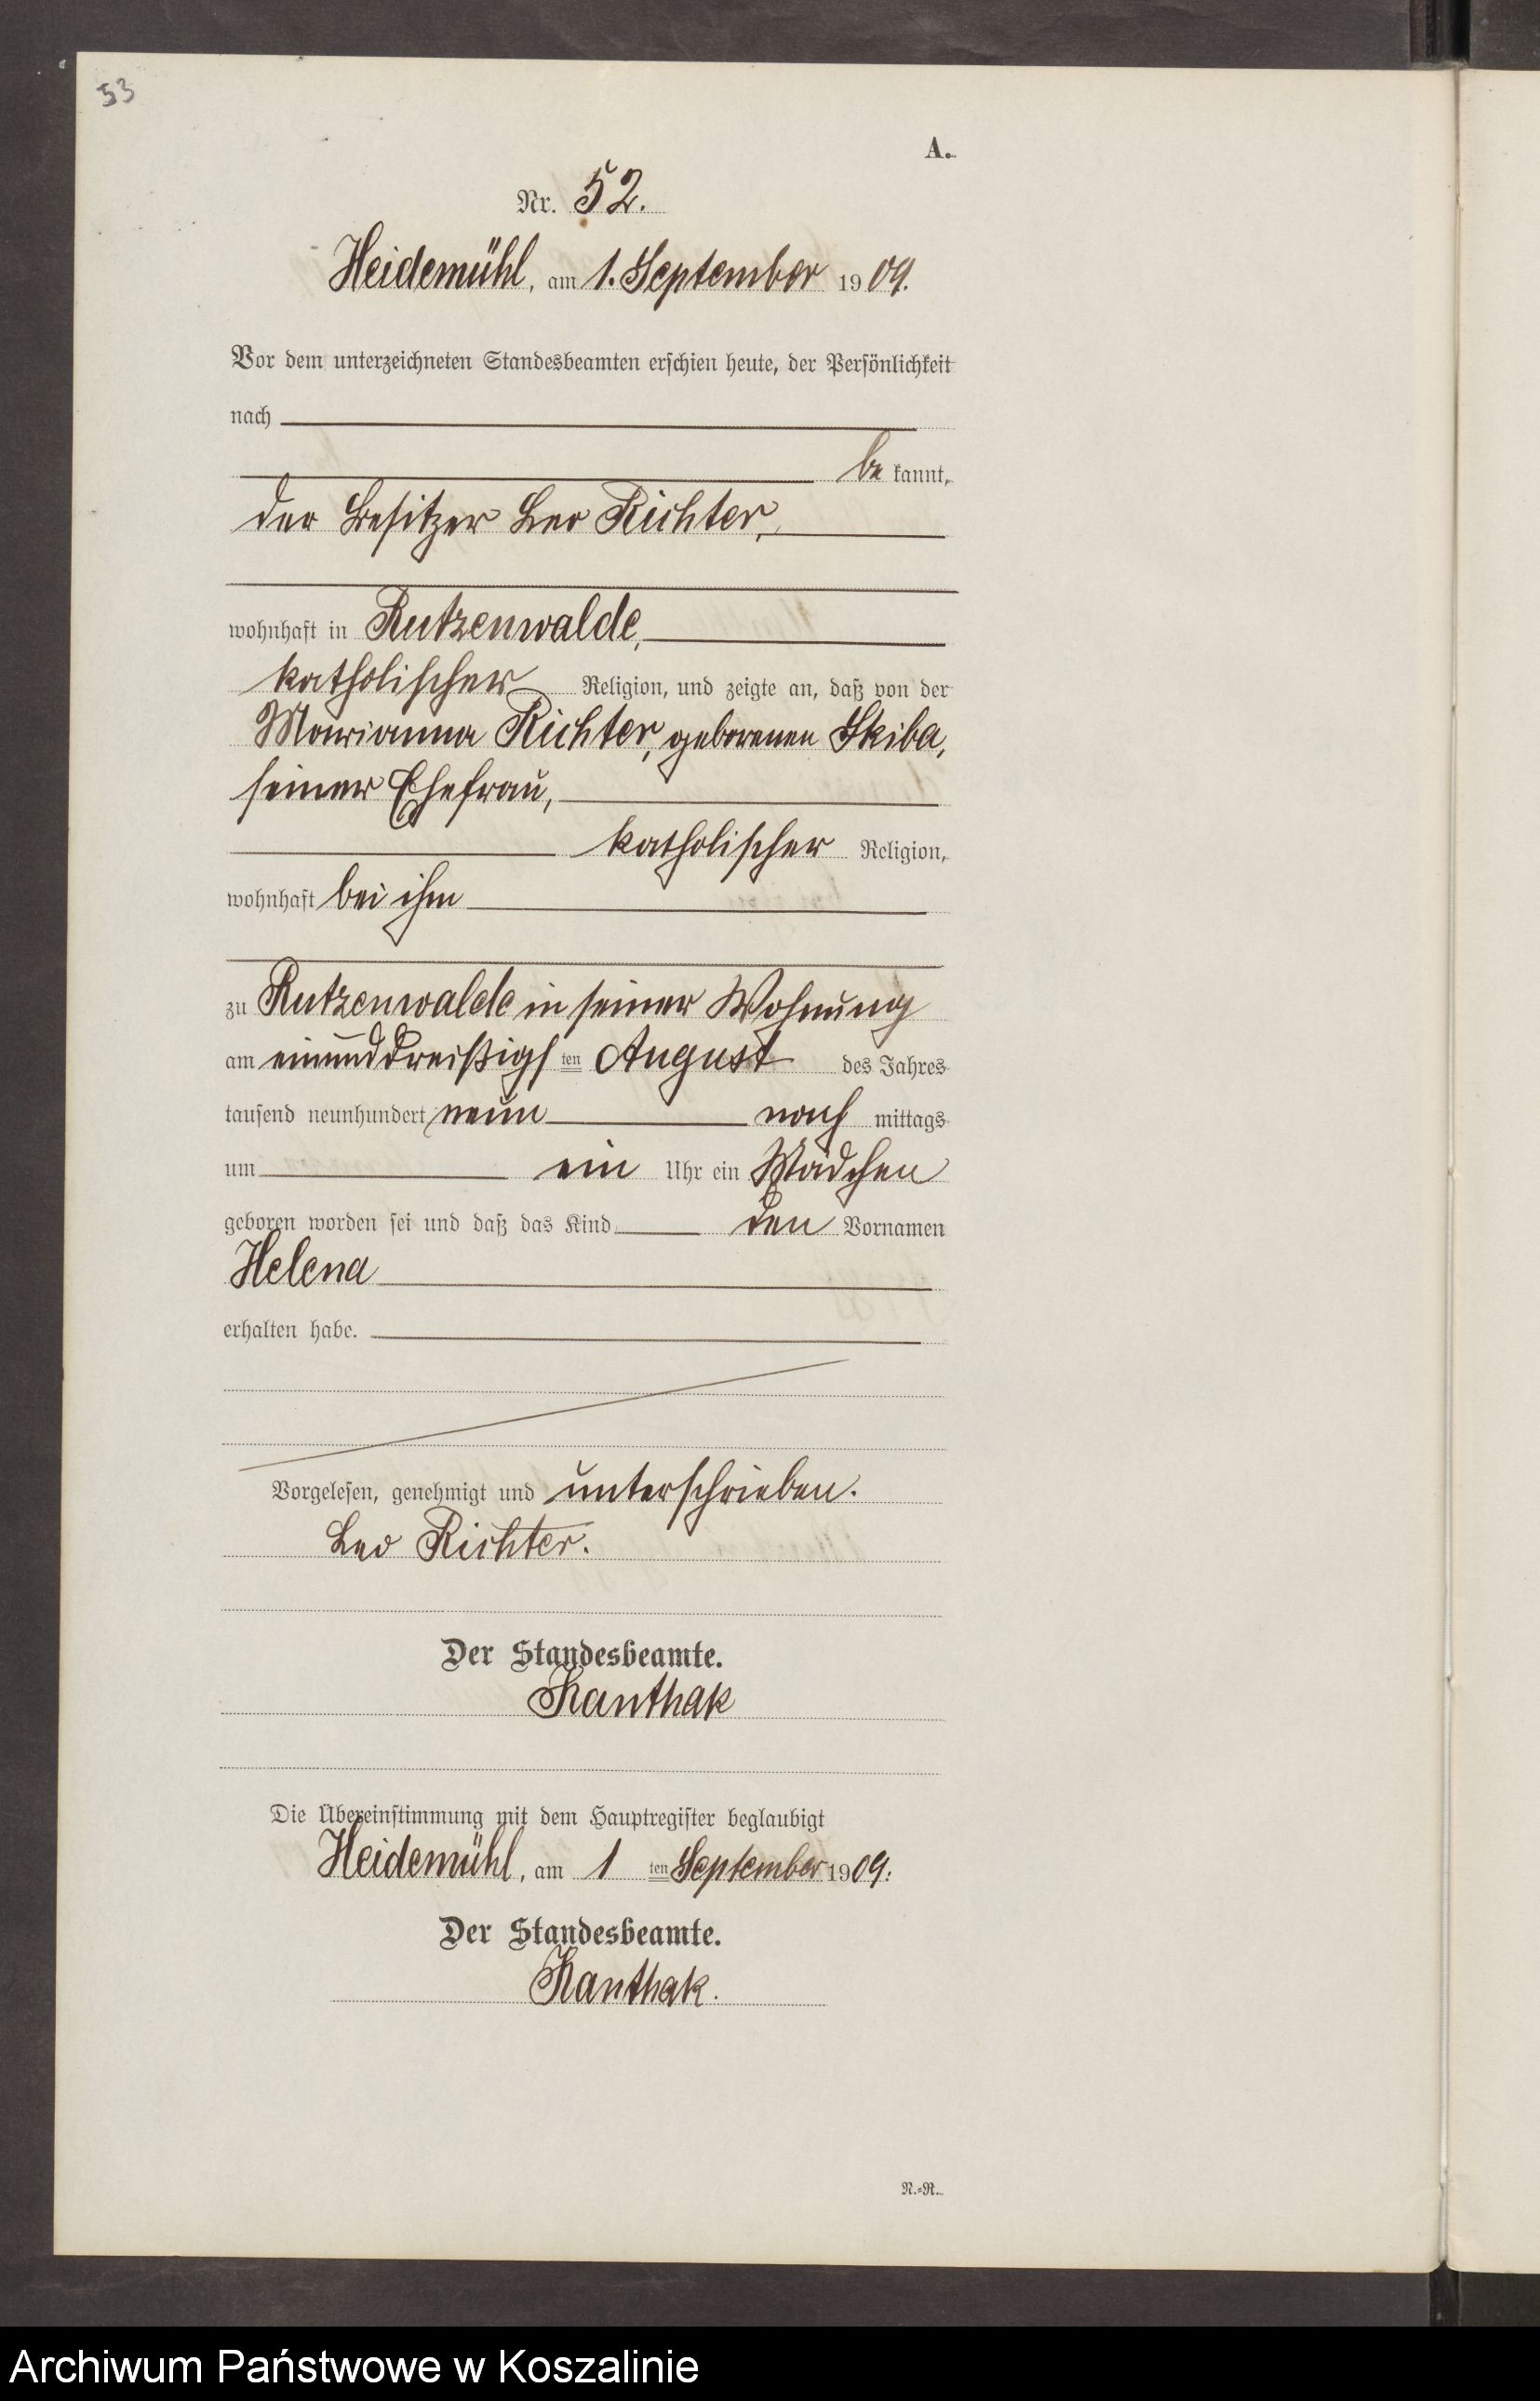 53
A.
Nr. 52.
Heidemühl, am 1. September 1909.
Vor dem unterzeichneten Standesbeamten erschien heute, der Persönlichkeit
nach
bekannt,
der Besitzer Leo Richter,
wohnhaft in Rutzenwalde,
katholischer Religion, und zeigte an, daß von der
Marianna Richter, geborenen Skiba,
seiner Ehefrau,
katholischer Religion,
wohnhaft bei ihm
zu Rutzenwalde in seiner Wohnung
am einunddreißigsten August des Jahres
tausend neunhundert neun nachmittags
um ein Uhr ein Mädchen
geboren worden sei und daß das Kind den Vornamen
Helena
erhalten habe.
Vorgelesen, genehmigt und unterschrieben.
Leo Richter.
Der Standesbeamte.
Kanthak
Die Übereinstimmung mit dem Hauptregister beglaubigt
Heidemühl, am 1ten September 1909.
Der Standesbeamte.
Kanthak.
N.=R.
Archiwum Państwowe w Koszalinie